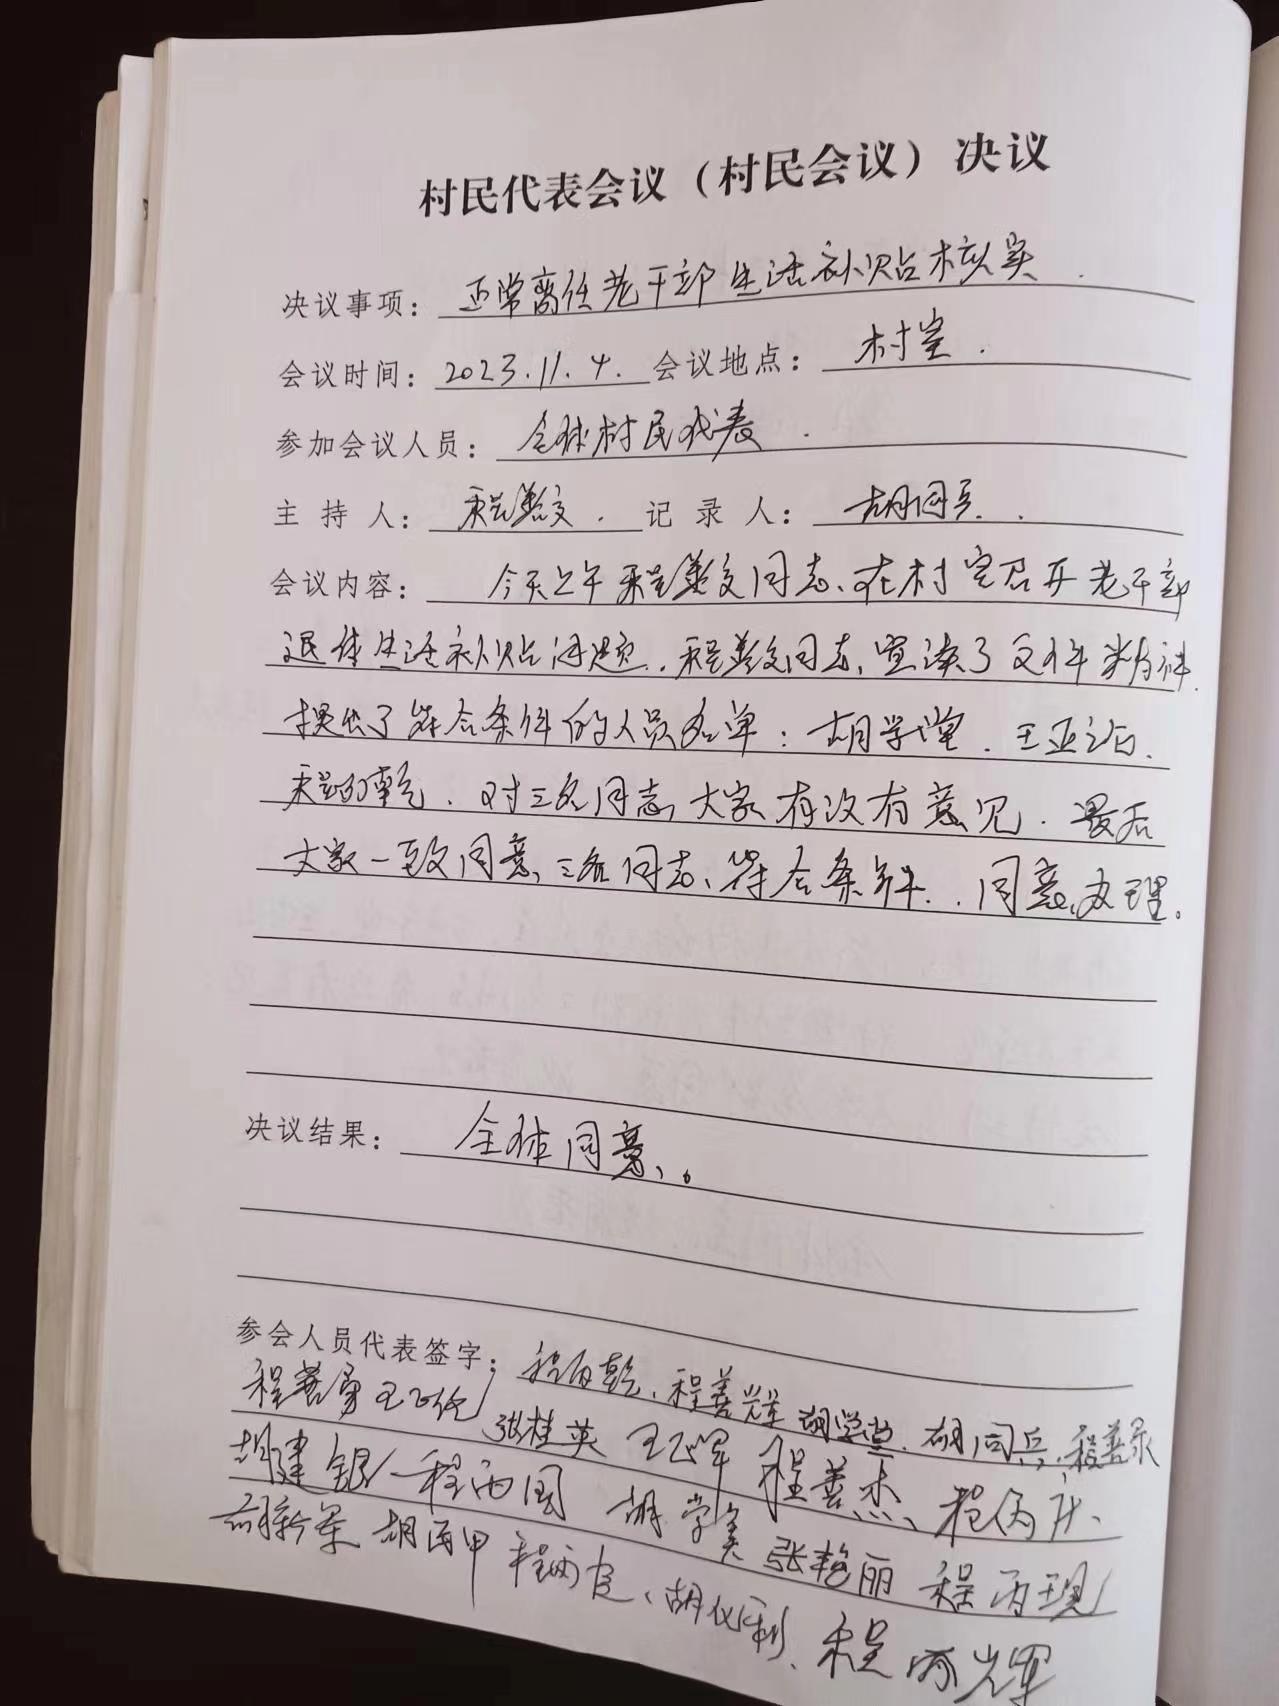 村民代表会议（村民会议）决议
决议事项：正常离任老干部生活补贴核实.
会议时间：2023.11.4. 会议地点：村室.
参加会议人员：全体村民代表.
主持人：程善文. 记录人：胡同兵.
会议内容：今天上午程善文同志、在村室召开老干部
退休生活补贴问题..程善文同志,宣读了文件精神.
提出了符合条件的人员名单：胡学堂.王亚治.
程百乾.对三名同志,大家有没有意见.最后
大家一致同意,三名同志、符合条件..同意,办理。
决议结果：全体同意、。
参会人员代表签字：程百乾.程善辉 胡学堂.胡同兵.程善录
程善勇 王 张桂英 王 程善杰、程
胡建银 程丙国 胡学美 张艳丽 程丙现
胡新军 胡丙甲 程丙 、胡 利、程丙辉